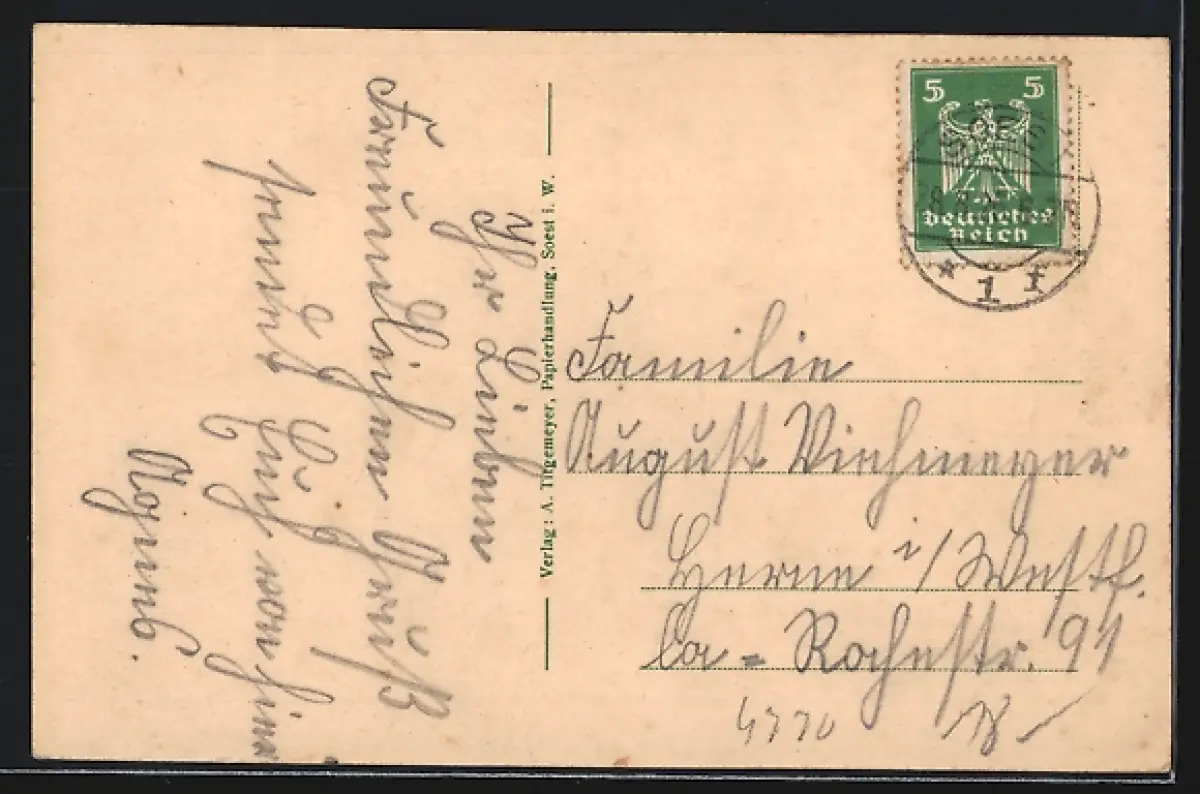 Ihr Lieben
Freundlichen Gruß
sendet Euch von hier
Agnes.
Verlag: A. Titgemeyer, Papierhandlung, Soest i. W.
5 5
Deutsches
Reich
* 1 f
Familie
August Viehmeyer
Herne i/Westf.
La-Rochestr. 91